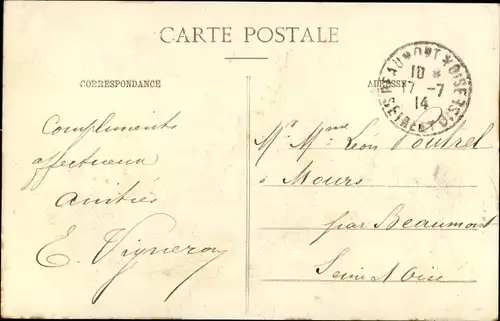 CARTE POSTALE
CORRESPONDANCE
ADRESSE
BEAUMONT * OISE
SEINE ET OISE
10 *
17 - 7
14
Compliments
affectueux
amitiés
E. Vigneron
Mr Mme Léon Poutrel
à Mours
par Beaumont
Seine & Oise